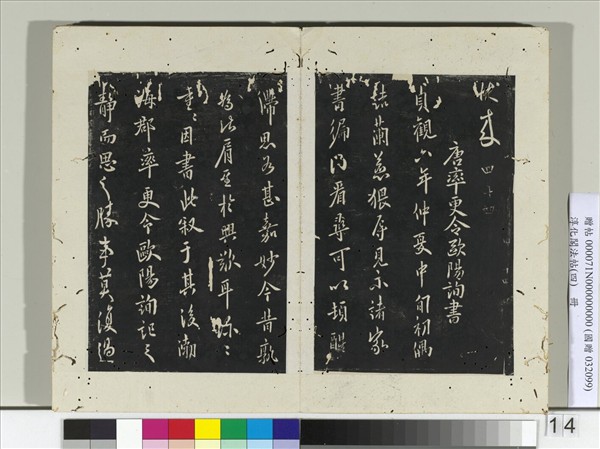 四十四
唐率更令歐陽詢書
貞觀六年仲夏中旬初偶
蘭惠猥存見示諸家
書徧閱看尋可以頓醒
滯思為甚嘉妙今昔孰
為比肩至於興歎耳珍珍
重重因書此敘于其後渤
海郡率更令歐陽詢記之
靜而思之勝事莫復過
贈帖 000071N000000000 (國贈 032099)
淳化閣法帖(四) 冊
14